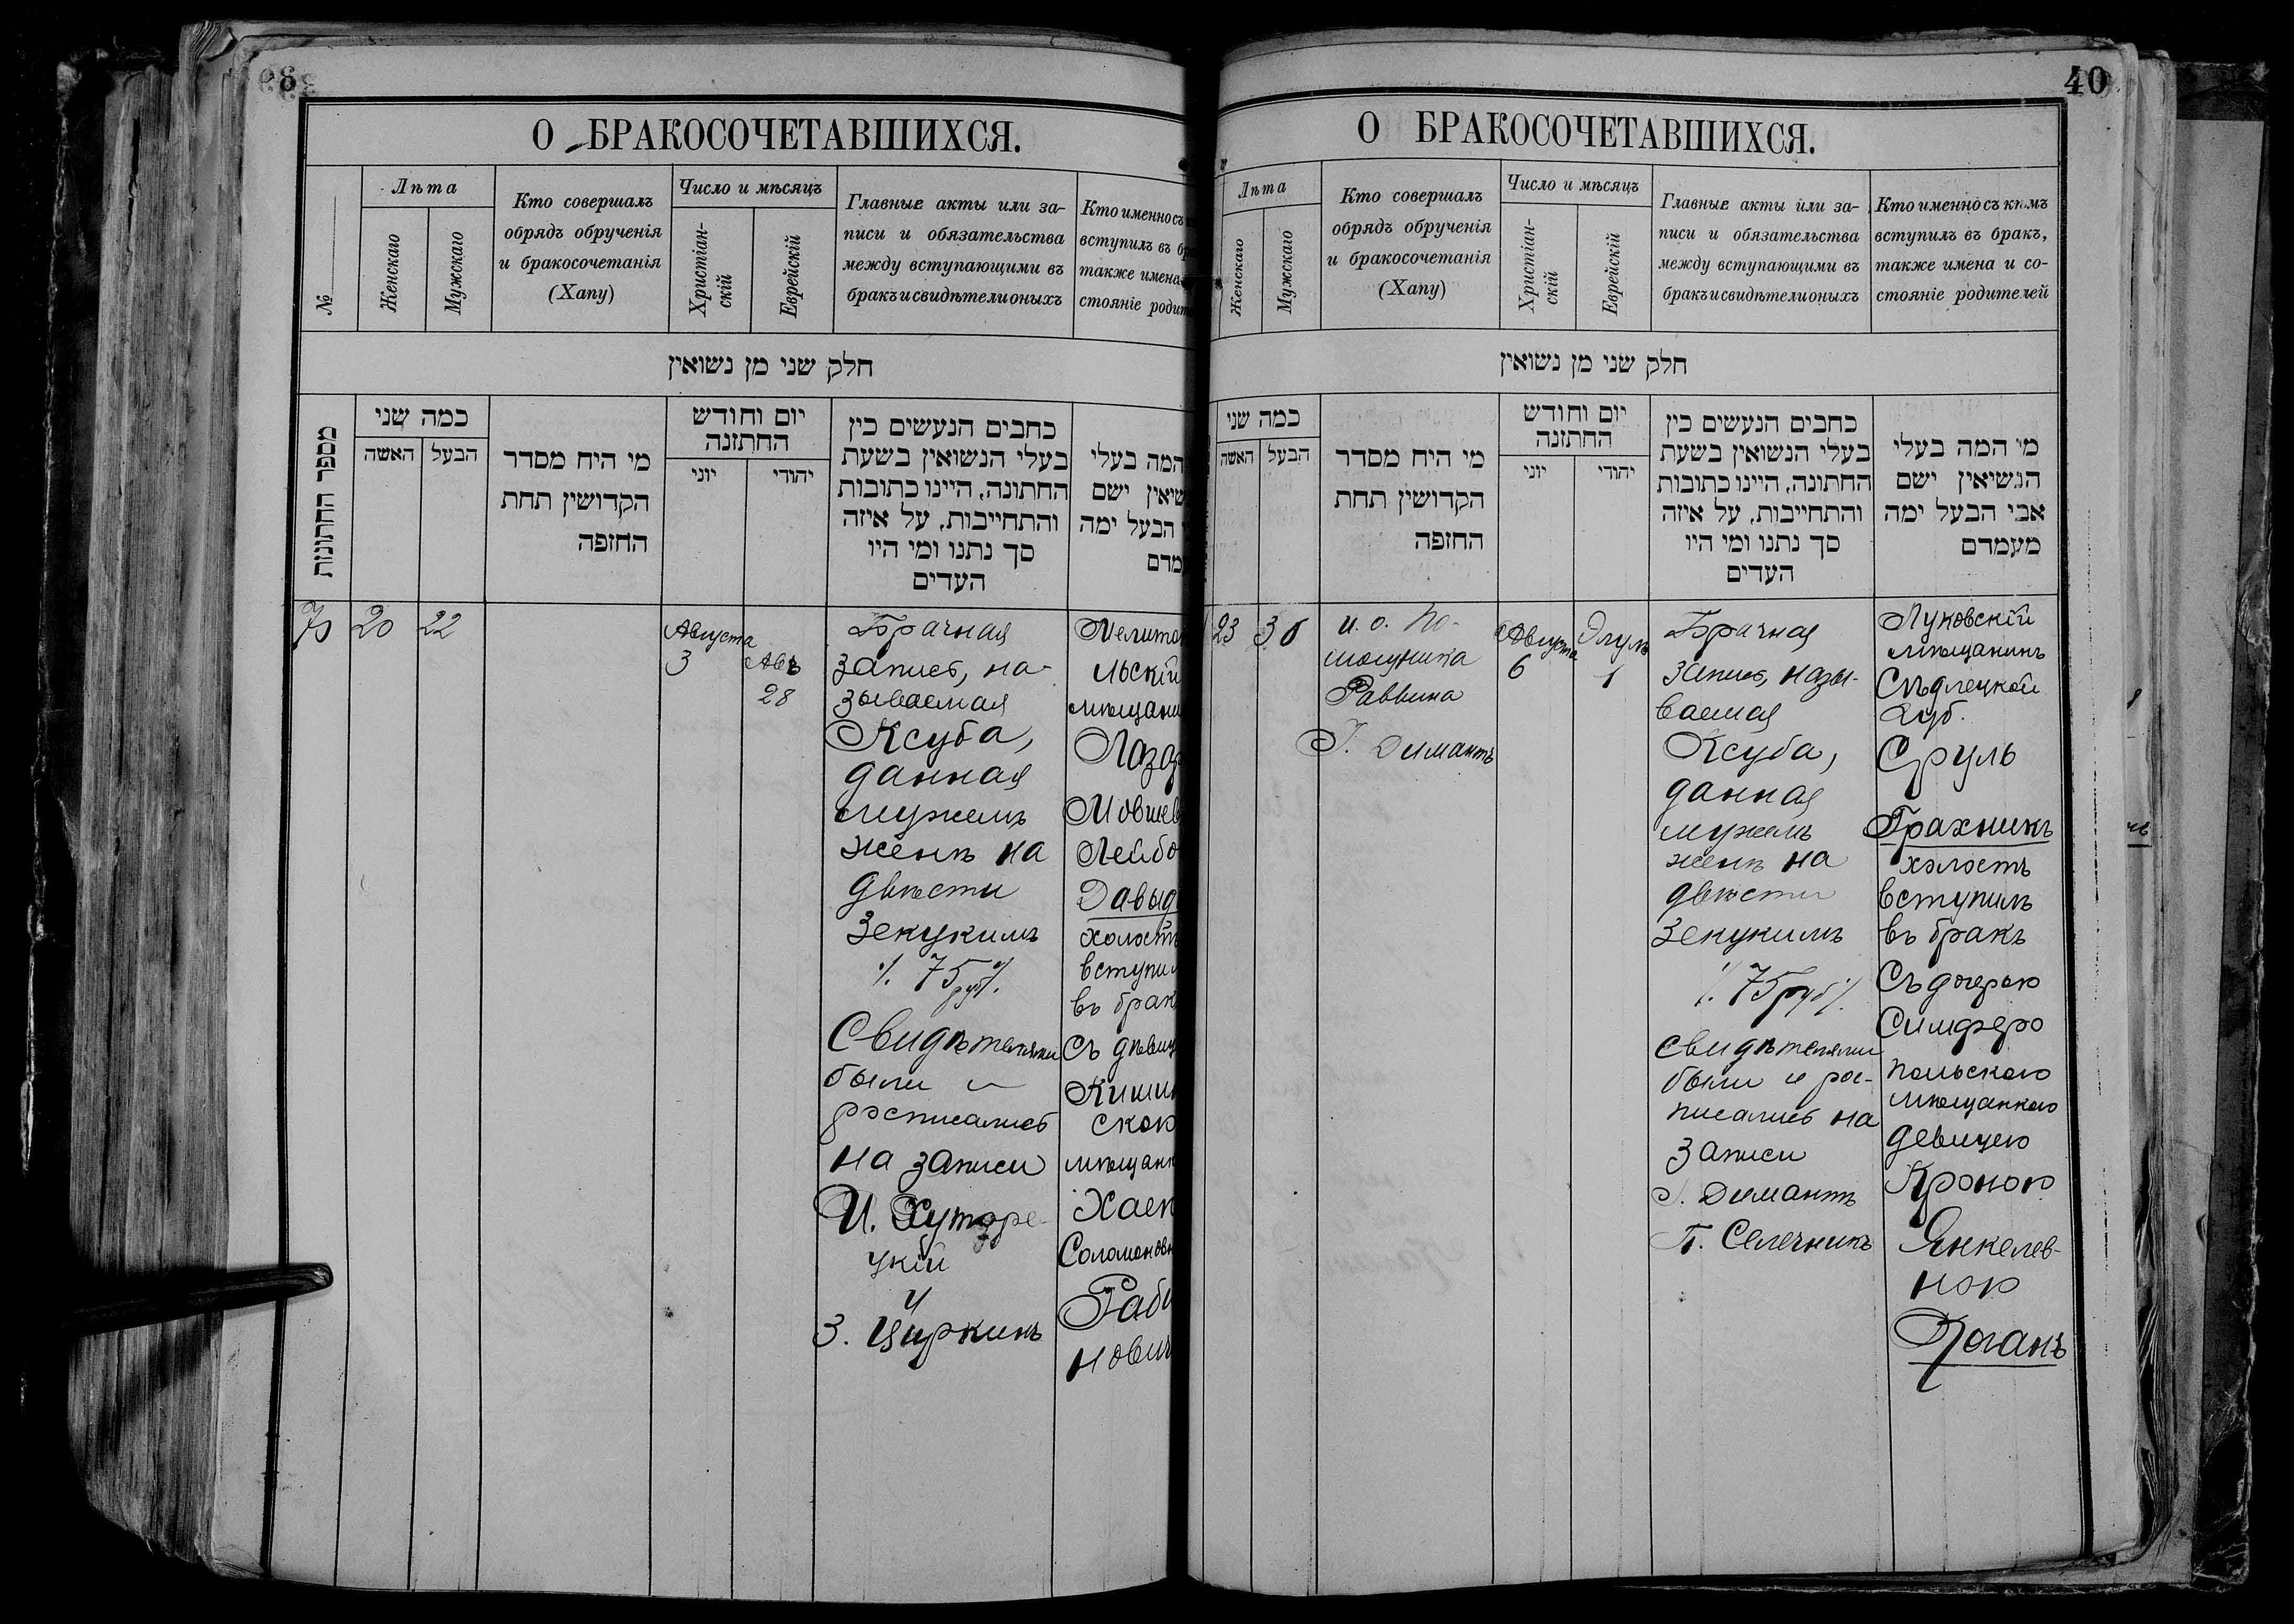 О БРАКОСОЧЕТАВШИХСЯ.
№
Лѣта
Женскаго
Мужскаго
Кто совершалъ
обрядъ обрученія
и бракосочетанія
(Хапу)
Число и мѣсяцъ
Христіан-
скій
Еврейскій
Главные акты или за-
писи и обязательства
между вступающими въ
бракъ и свидѣтели оныхъ
Кто именно съ
вступилъ въ бр
также имена
стояніе родит
חלק שני מן נשואין
מספר החתונות
כמה שני
האשה
הבעל
מי היה מסדר
הקדושין תחת
החופה
יום וחודש
החתונה
יוני
יהודי
כתבים הנעשים בין
בעלי הנשואין בשעת
החתונה, היינו כתובות
והתחייבות, על איזה
סך נתנו ומי היו
העדים
המה בעלי
שיאין ישם
הבעל ימה
מדם
20
22
Августа
3
Авъ
28
Брачная
запись, на-
зываемая
Ксуба,
данная
мужемъ
женѣ на
двѣсти
Зекукимъ
./. 75 руб ./.
Свидѣтелями
были и
росписались
на записи
И. Хуторе-
цкій
и
З. Циркинъ
Мелито
льскій
мѣщани
Лазар
Мовшев
Лейбо
Давыд
холостъ
вступил
въ брак
Съ дѣвиц
Кишин
скою
мѣщанк
Хаею
Соломоновн
Раби
нович
40
О БРАКОСОЧЕТАВШИХСЯ.
Лѣта
Женскаго
Мужскаго
Кто совершалъ
обрядъ обрученія
и бракосочетанія
(Хапу)
Число и мѣсяцъ
Христіан-
скій
Еврейскій
Главные акты или за-
писи и обязательства
между вступающими въ
бракъ и свидѣтели оныхъ
Кто именно съ кѣмъ
вступилъ въ бракъ,
также имена и со-
стояніе родителей
חלק שני מן נשואין
כמה שני
האשה
הבעל
מי היה מסדר
הקדושין תחת
החופה
יום וחודש
החתונה
יוני
יהודי
כתבים הנעשים בין
בעלי הנשואין בשעת
החתונה, היינו כתובות
והתחייבות, על איזה
סך נתנו ומי היו
העדים
מי המה בעלי
הנשיאין ישם
אבי הבעל ימה
מעמדם
23
и. о. По-
мощника
Раввина
Димантъ
Августа
6
Элулъ
1
Брачная
запись, назы-
ваемая
Ксуба,
данная
мужемъ
женѣ на
двѣсти
Зекукимъ
./. 75 руб ./.
свидѣтелями
были и рос-
писались на
записи
Димантъ
П. Селечникъ
Луковскій
мѣщанинъ
Сѣдлецкой
Губ.
Сруль
Грахникъ
холостъ
вступилъ
въ бракъ
Съ дочерью
Симферо
польскаго
мѣщанкою
девицею
Кроною
Янкелев-
ною
Коганъ